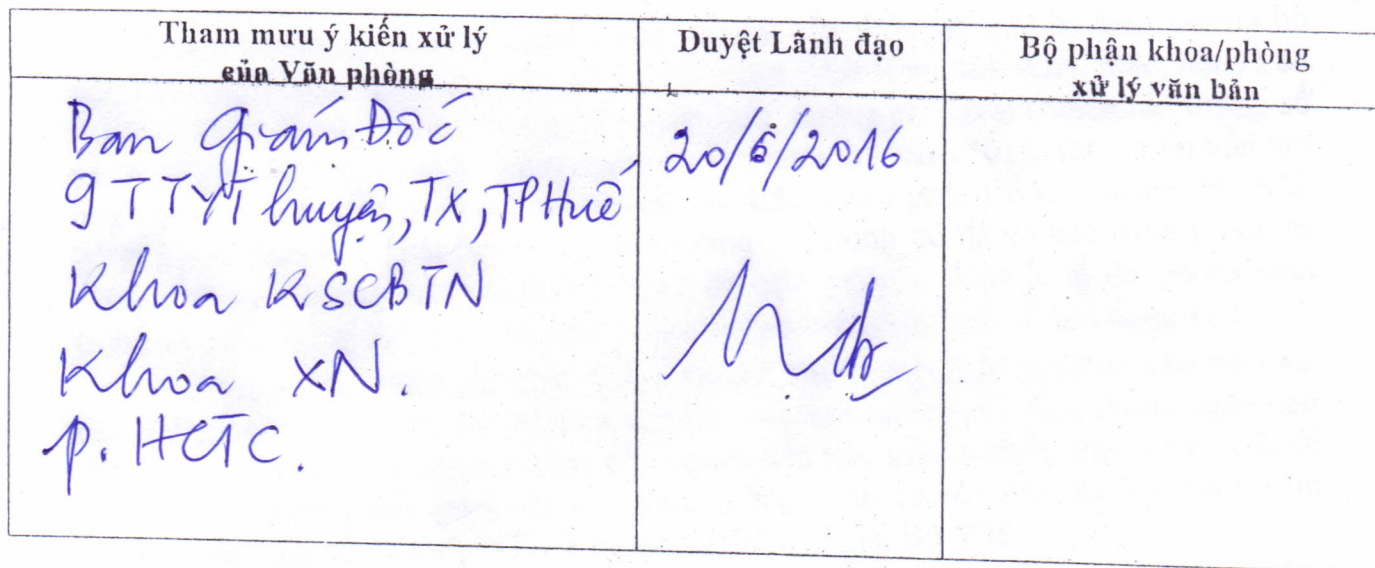 Tham mưu ý kiến xử lý
của Văn phòng
Duyệt Lãnh đạo
Bộ phận khoa/phòng
xử lý văn bản
Ban Giám Đốc
9 TTYT huyện, TX, TP Huế
Khoa KSCBTN
Khoa XN.
P. HCTC.
20/6/2016